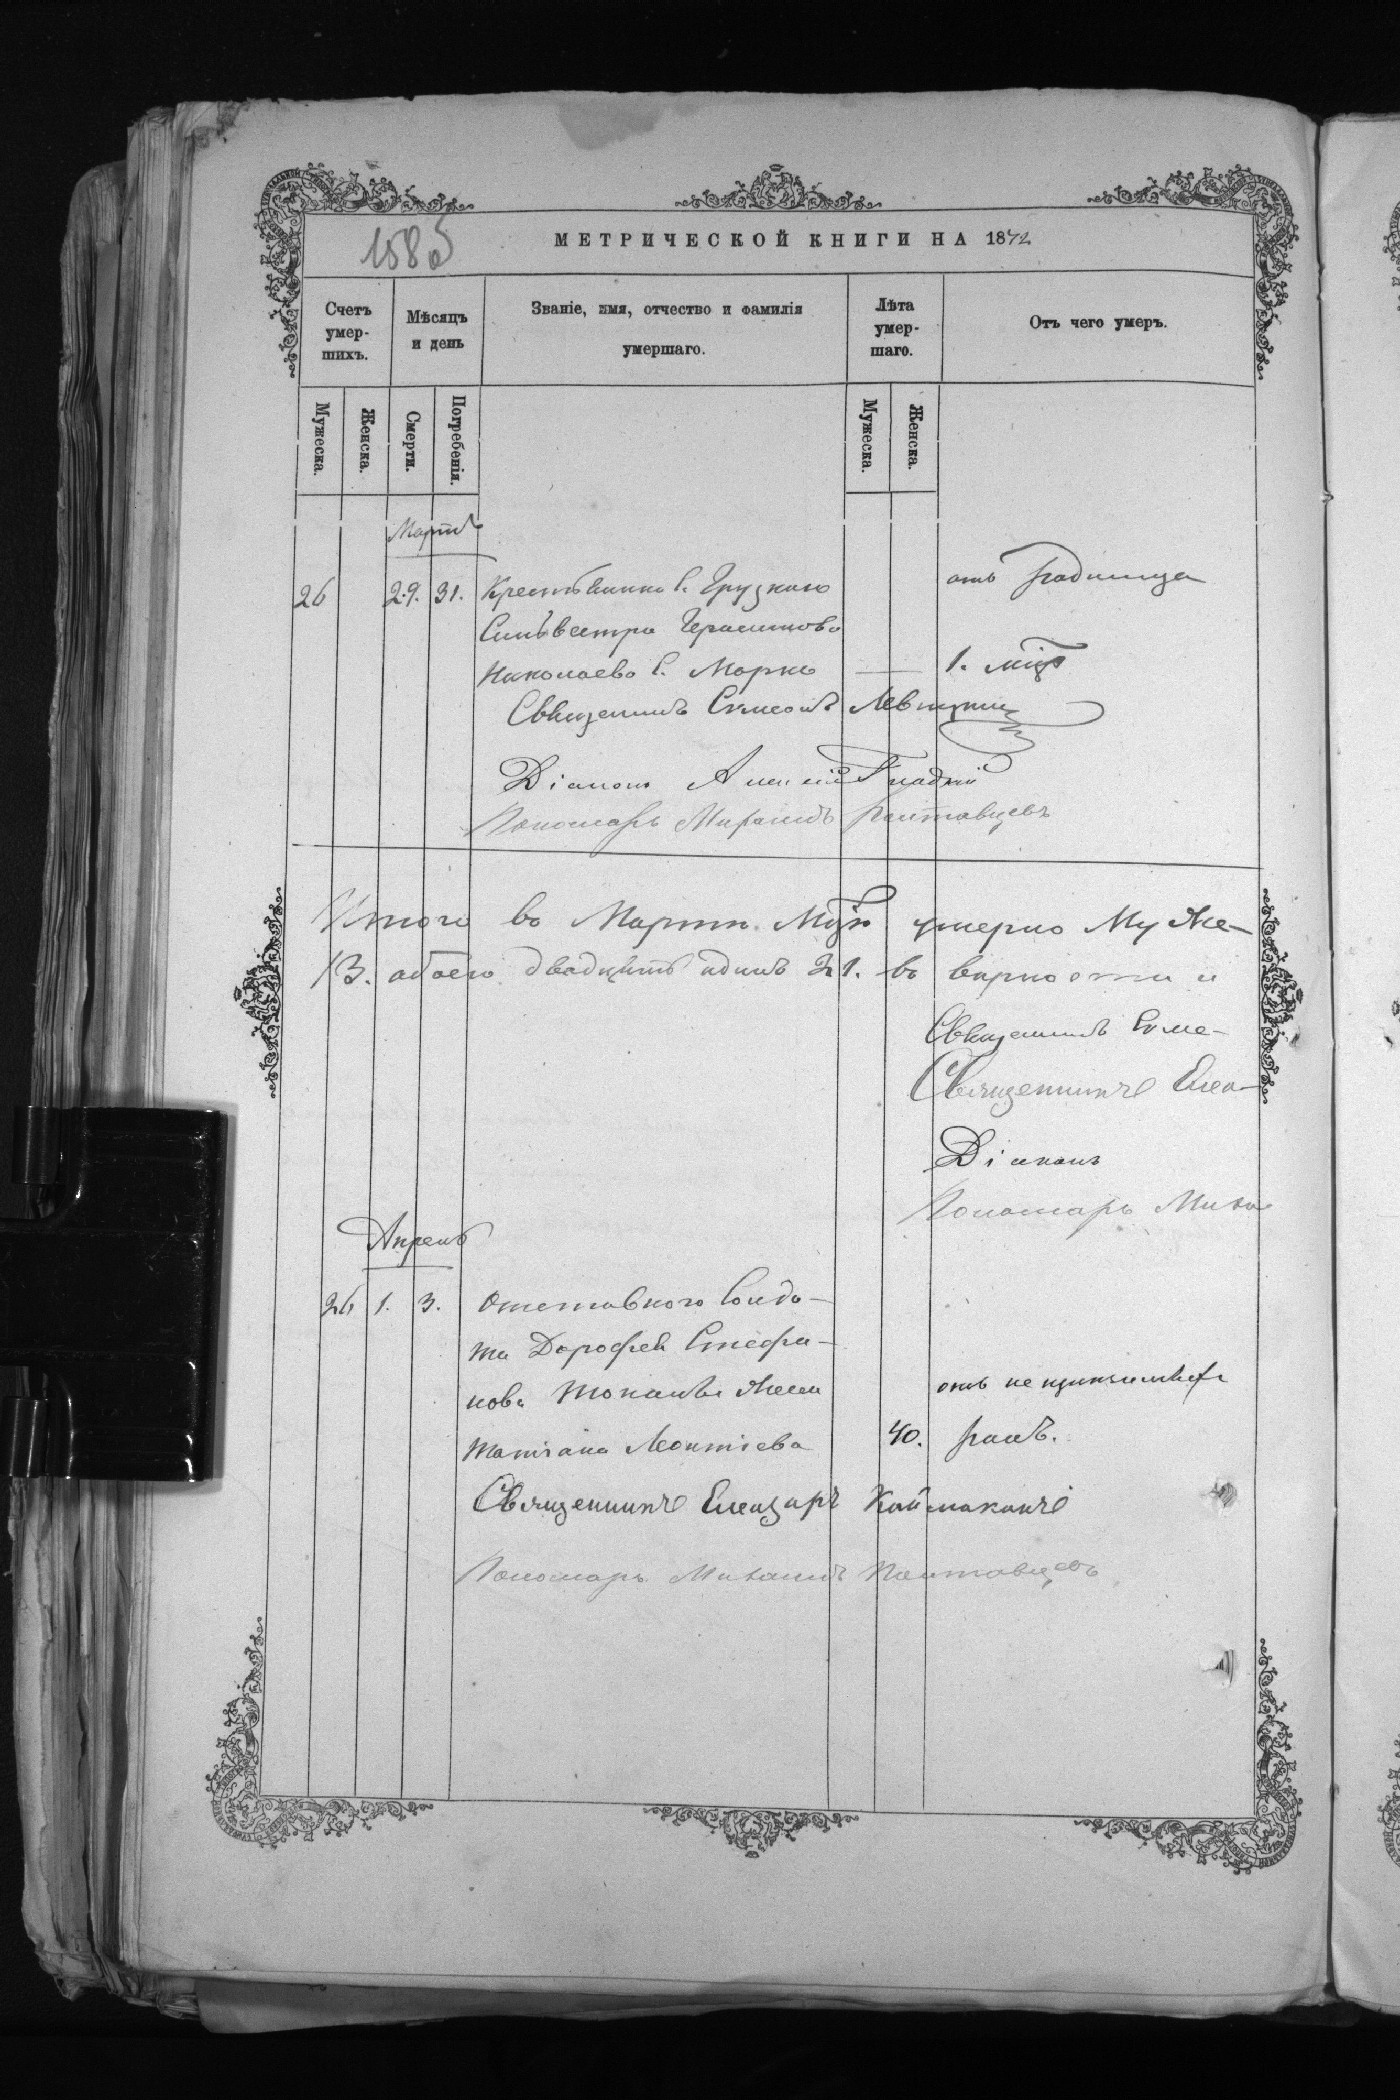 158 б
МЕТРИЧЕСКОЙ КНИГИ НА 1872
Счетъ умер-шихъ.
Мѣсяцъ и день
Званіе, имя, отчество и фамилія умершаго.
Лѣта умер-шаго.
Отъ чего умеръ.
Мужеска.
Женска.
Смерти.
Погребенія.
Мужеска.
Женска.
Мартъ
26 29. 31. Крестьянина с. Грузкаго отъ родимца
Сильвестра Герасимова
Николаева с. Марко 1. мцъ
Священникъ Симеонъ Левицкій
Діаконъ Алексій Гладкій
Пономарь Михаилъ Полтавцевъ
Итого въ Мартѣ Мцѣ умерло Муже-
13. обоего двадцать одинъ 21. въ вѣрности
Священникъ Симе-
Священникъ Елеа-
Діаконъ
Пономарь Миха
Апрель
26 1. 3. Отставного Солда-
та Дорофея Стефа-
нова жена отъ
Татіана Леонтіева 40. ранъ.
Священникъ Елеазаръ Каймаканъ
Пономарь Михаилъ Полтавцевъ